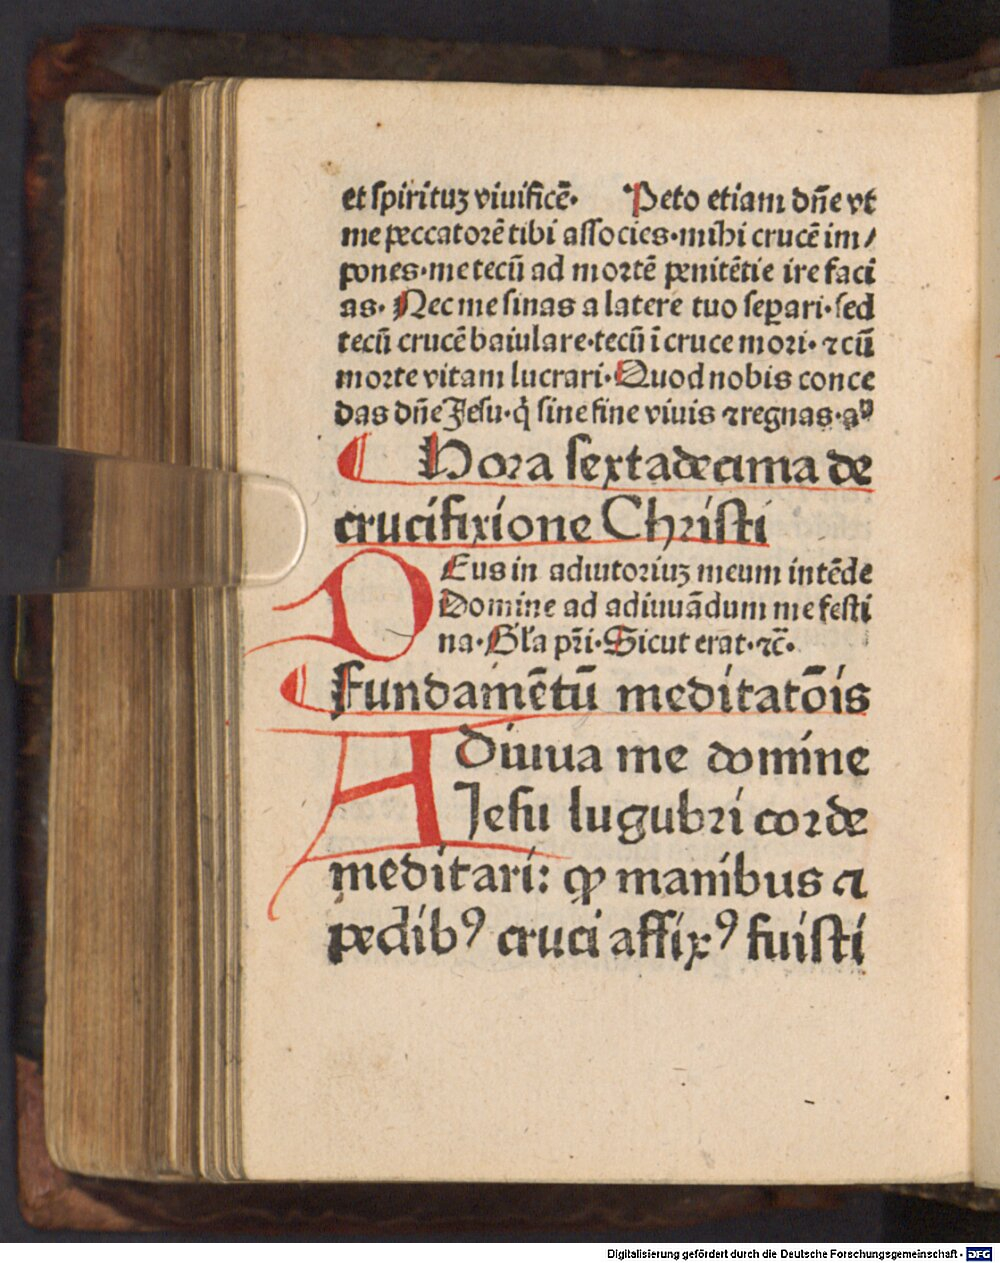 et spirituꝫ viuificē. Peto etiam dn̄e vt
me peccatorē tibi associes·mihi crucē im/
pones·me tecū ad mortē penitētie ire faci
as· Nec me sinas a latere tuo seꝑari·sed
tecū crucē baiulare·tecū ī cruce mori· ⁊ cū
morte vitam lucrari·Quod nobis conce
das dn̄e Jesu·q̇ sine fine viuis ⁊ regnas·a
Hora sextadecima de
crucifixione Christi
DEus in adiutoriuꝫ meum intēde
Domine ad adiuuādum me festi
na·Gl'a pr̄i·Sicut erat·⁊c̄·
Fundamētū meditatōis
Adiuua me domine
Jesu lugubri corde
meditari: ꝙ manibus ⁊
pedibꝰ cruci affixꝰ fuisti
Digitalisierung gefördert durch die Deutsche Forschungsgemeinschaft - DFG